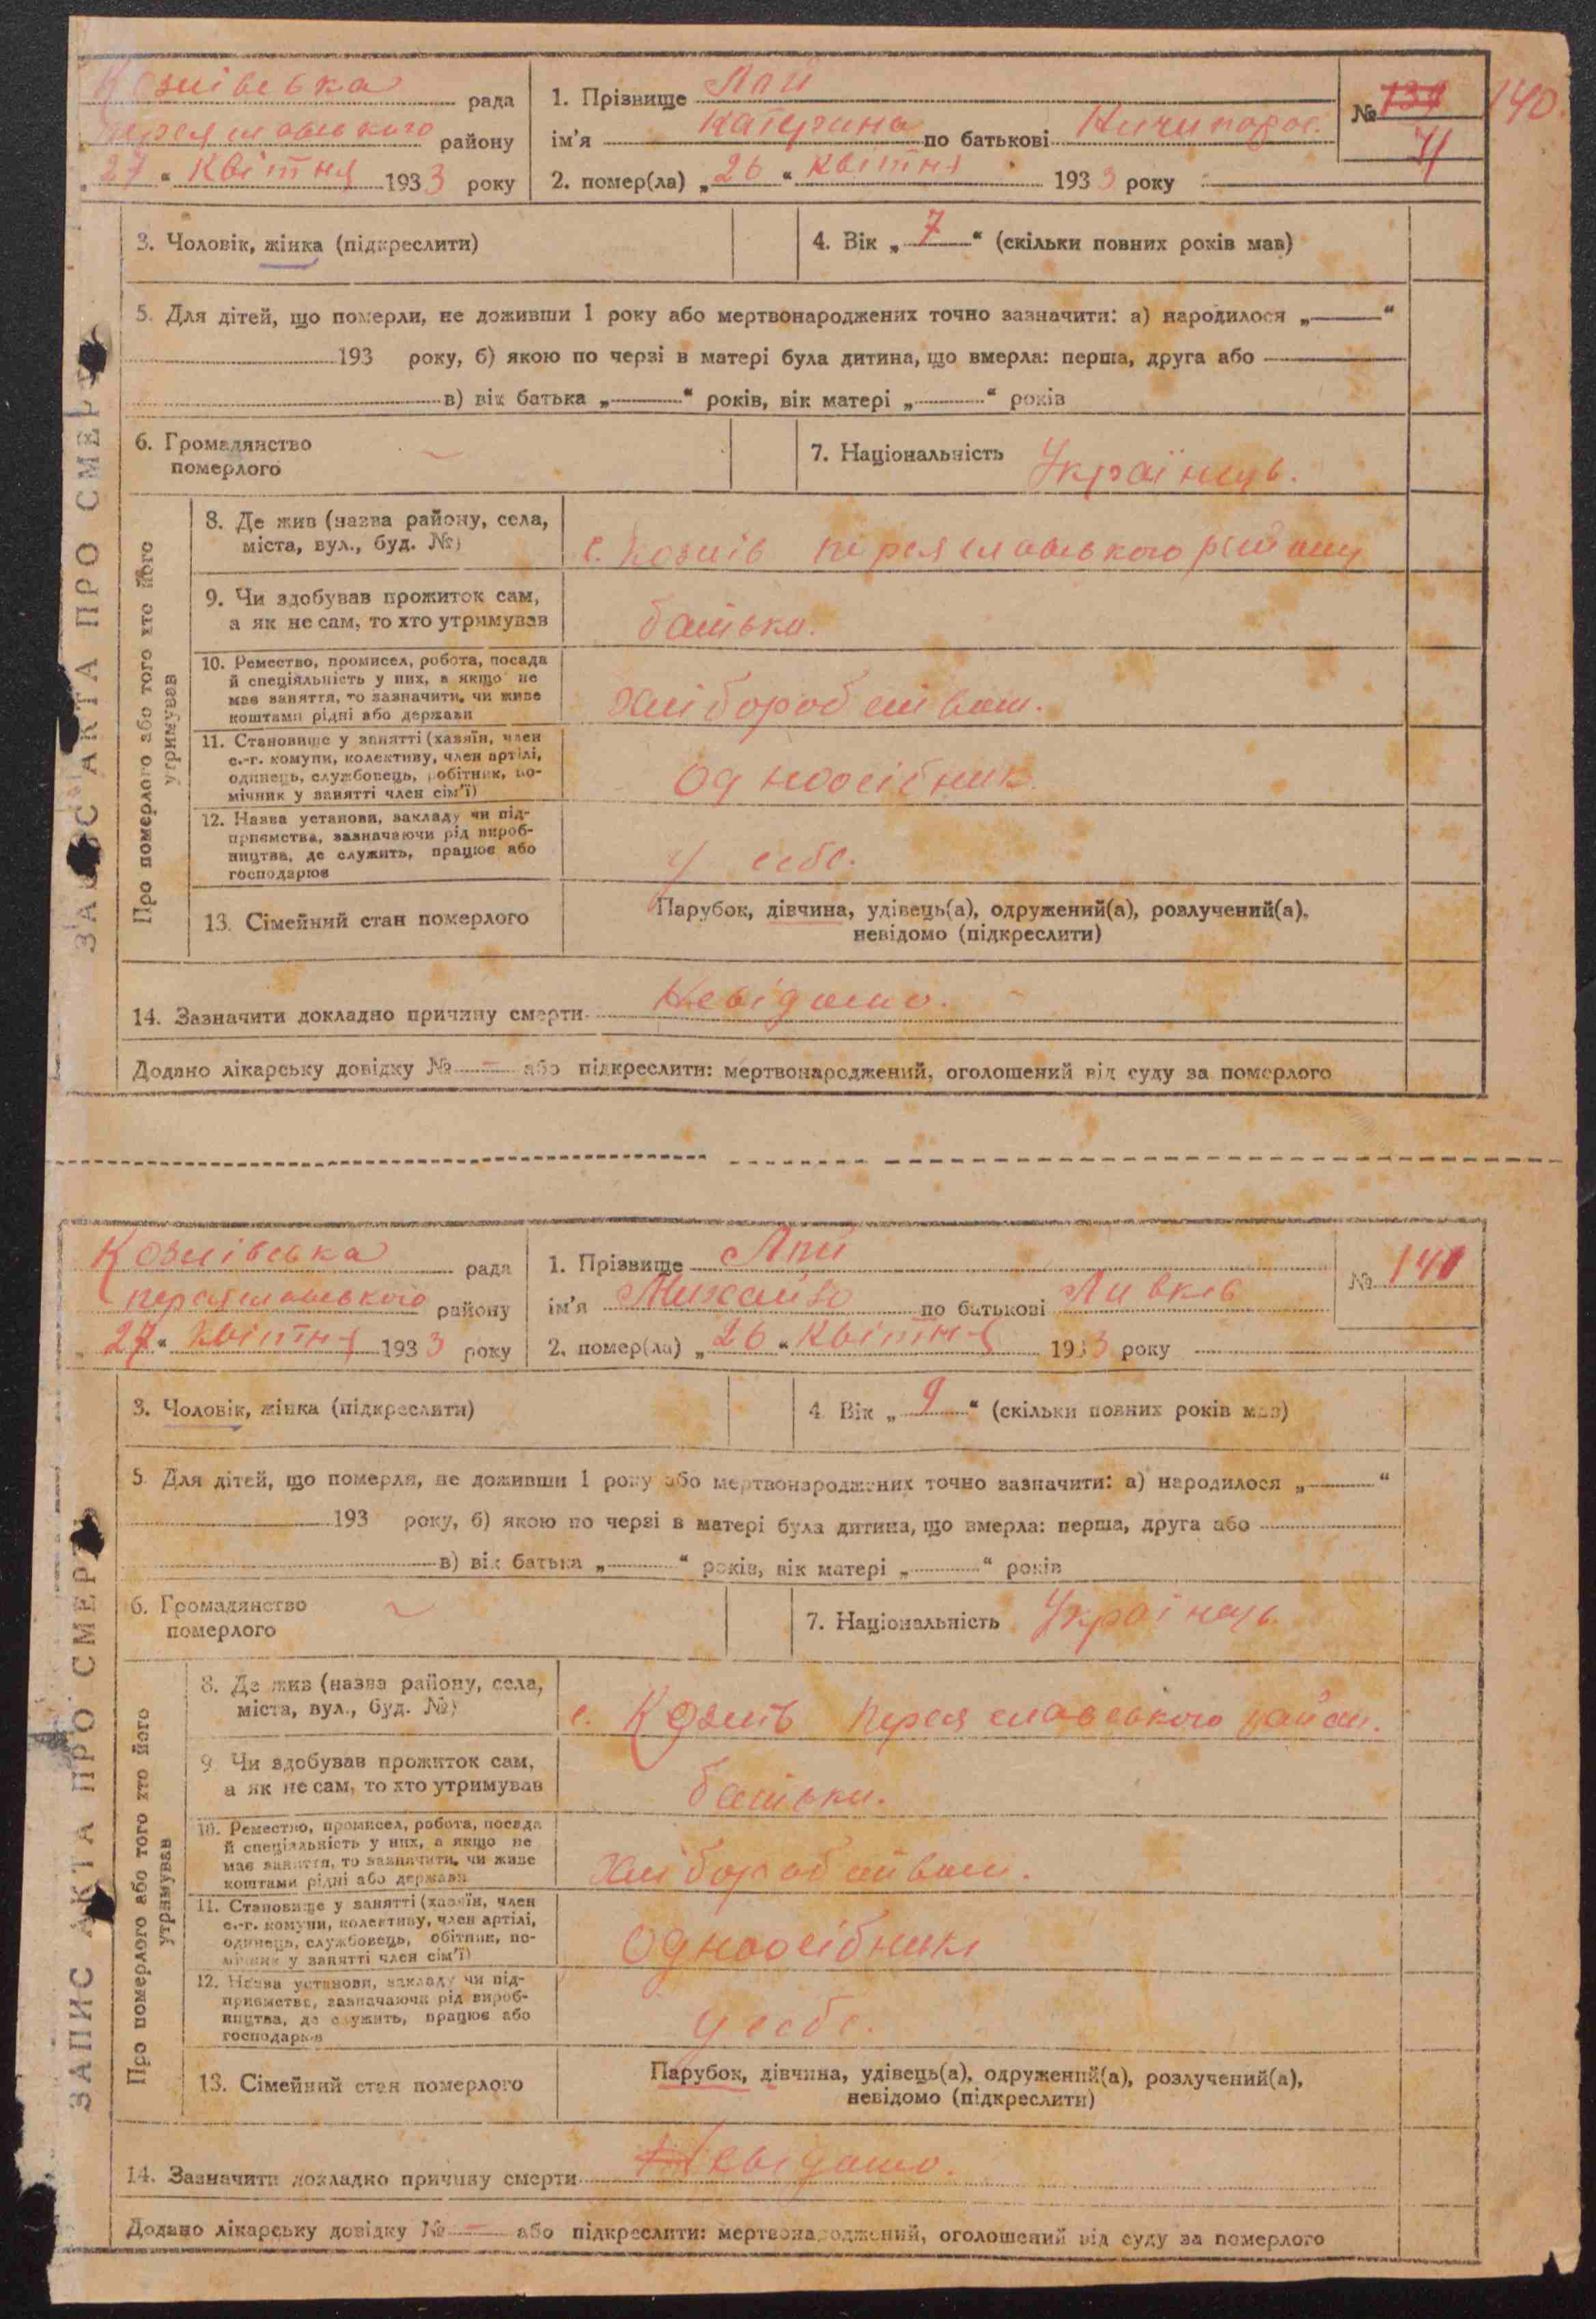 Козлівська рада
Переяславського району
„27“ Квітня 1933 року
1. Прізвище
ім'я Катерина по батькові Ничипоров.
2. помер(ла) „26“ Квітня 1933 року
№ 139
140.
3. Чоловік, жінка (підкреслити)
4. Вік „7“ (скільки повних років мав)
5. Для дітей, що померли, не доживши 1 року або мертвонароджених точно зазначити: а) народилося „——“
193 року, б) якою по черзі в матері була дитина, що вмерла: перша, друга або
в) вік батька „——“ років, вік матері „——“ років
6. Громадянство
померлого
7. Національність Українець.
ЗАПИС АКТА ПРО СМЕРТЬ
Про померлого або того хто його
утримував
8. Де жив (назва району, села,
міста, вул., буд. №)
с. Козлів Переяславського району
9. Чи здобував прожиток сам,
а як не сам, то хто утримував
батьки.
10. Ремество, промисел, робота, посада
й спеціяльність у них, а якщо не
має заняття, то зазначити, чи живе
коштами рідні або держави
хліборобством.
11. Становище у занятті (хазяїн, член
с.-г. комуни, колективу, член артілі,
одинець, службовець, робітник, по-
мічник у занятті член сім'ї)
Одноосібник.
12. Назва установи, закладу чи під-
приємства, зазначаючи рід вироб-
ництва, де служить, працює або
господарює
у себе.
13. Сімейний стан померлого
Парубок, дівчина, удівець(а), одружений(а), розлучений(а),
невідомо (підкреслити)
14. Зазначити докладно причину смерти Невідомо.
Додано лікарську довідку № — або підкреслити: мертвонароджений, оголошений від суду за померлого
Козлівська рада
Переяславського району
„27“ Квітня 1933 року
1. Прізвище
ім'я Михайло по батькові
2. помер(ла) „26“ Квітня 1933 року
№ 141
3. Чоловік, жінка (підкреслити)
4. Вік „9“ (скільки повних років мав)
5. Для дітей, що померли, не доживши 1 року або мертвонароджених точно зазначити: а) народилося „——“
193 року, б) якою по черзі в матері була дитина, що вмерла: перша, друга або
в) вік батька „——“ років, вік матері „——“ років
6. Громадянство
померлого
7. Національність Українець.
ЗАПИС АКТА ПРО СМЕРТЬ
Про померлого або того хто його
утримував
8. Де жив (назва району, села,
міста, вул., буд. №)
с. Козлів Переяславського район.
9. Чи здобував прожиток сам,
а як не сам, то хто утримував
батьки.
10. Ремество, промисел, робота, посада
й спеціяльність у них, а якщо не
має заняття, то зазначити, чи живе
коштами рідні або держави
хліборобством.
11. Становище у занятті (хазяїн, член
с.-г. комуни, колективу, член артілі,
одинець, службовець, робітник, по-
мічник у занятті член сім'ї)
Одноосібник
12. Назва установи, закладу чи під-
приємства, зазначаючи рід вироб-
ництва, де служить, працює або
господарює
у себе.
13. Сімейний стан померлого
Парубок, дівчина, удівець(а), одружений(а), розлучений(а),
невідомо (підкреслити)
14. Зазначити докладно причину смерти Невідомо.
Додано лікарську довідку № — або підкреслити: мертвонароджений, оголошений від суду за померлого